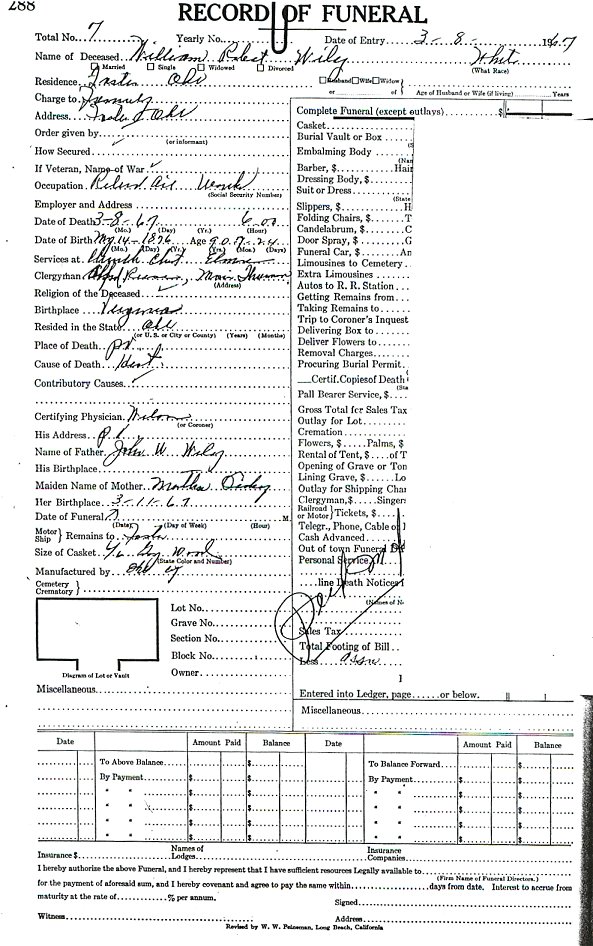 288
RECORD OF FUNERAL
Total No. 7 Yearly No. Date of Entry 3-8- 1967
Name of Deceased William Robert Wiley White
Married Single Widowed Divorced (What Race)
Residence Ohi Husband Wife Widow
or of Age of Husband or Wife (if living) Years
Charge to Family
Address
Order given by
(or informant)
How Secured
If Veteran, Name of War
Occupation Retired
(Social Security Number)
Employer and Address
Date of Death 3-8-67 6-00
(Mo.) (Day) (Yr.) (Hour)
Date of Birth 14-1876 Age 90. 24
(Mo.) (Day) (Yr.) (Yrs.) (Mos.) (Days)
Services at
Clergyman
(Address)
Religion of the Deceased
Birthplace Virginia
Resided in the State
(or U. S. or City or County) (Years) (Months)
Place of Death
Cause of Death
Contributory Causes
Certifying Physician
(or Coroner)
His Address
Name of Father John W. Wiley
His Birthplace
Maiden Name of Mother Martha
Her Birthplace 3-11-67
Date of Funeral M.
(Date) (Day of Week) (Hour)
Motor Ship Remains to
Size of Casket Wood
(State Color and Number)
Manufactured by
Cemetery Crematory
Lot No.
Grave No.
Section No.
Block No.
Owner
Diagram of Lot or Vault
Miscellaneous
Complete Funeral (except outlays) $
Casket
Burial Vault or Box
(S
Embalming Body
(Nam
Barber, $ Hair
Dressing Body, $
Suit or Dress
(State
Slippers, $ H
Folding Chairs, $ T
Candelabrum, $ C
Door Spray, $ G
Funeral Car, $ An
Limousines to Cemetery
Extra Limousines
Autos to R. R. Station
Getting Remains from
Taking Remains to
Trip to Coroner's Inquest
Delivering Box to
Deliver Flowers to
Removal Charges
Procuring Burial Permit
Certif. Copies of Death
(Sta
Pall Bearer Service, $
Gross Total for Sales Tax
Outlay for Lot
Cremation
Flowers, $ Palms, $
Rental of Tent, $ of T
Opening of Grave or Ton
Lining Grave, $ Lo
Outlay for Shipping Char
Clergyman, $ Singers
Railroad or Motor Tickets, $
Telegr., Phone, Cable o
Cash Advanced
Out of town Funeral D
Personal Service
line Death Notices
(Names of N
Sales Tax
Total Footing of Bill
Less
Entered into Ledger, page or below.
Miscellaneous
Date Amount Paid Balance Date Amount Paid Balance
To Above Balance $ To Balance Forward $
By Payment $ $ By Payment $ $
" " $ $ " " $ $
" " $ $ " " $ $
" " $ $ " " $ $
" " $ $ " " $ $
Insurance $ Names of Lodges Insurance Companies
I hereby authorize the above Funeral, and I hereby represent that I have sufficient resources Legally available to
(Firm Name of Funeral Directors.)
for the payment of aforesaid sum, and I hereby covenant and agree to pay the same within days from date. Interest to accrue from
maturity at the rate of % per annum. Signed
Witness Address
Revised by W. W. Feineman, Long Beach, California